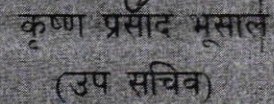 कृष्ण प्रसाद भूसाल
(उप सचिव)